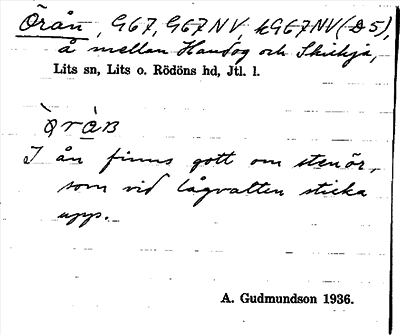 Örån, G67, G67NV, hG67NV(D5),
å mellan Handog och Skickja,
Lits sn, Lits o. Rödöns hd, Jtl. l.
I ån finns gott om stenör,
som vid lågvatten sticka
upp.
A. Gudmundson 1936.